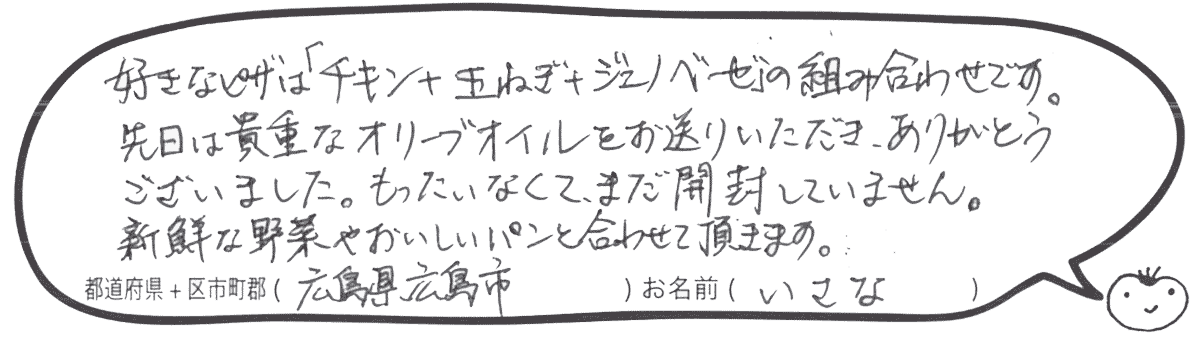 好きなピザは「チキン+玉ねぎ+ジェノベーゼ」の組み合わせです。
先日は貴重なオリーブオイルをお送りいただき、ありがとう
ございました。もったいなくて、まだ開封していません。
新鮮な野菜やおいしいパンと合わせて頂きます。
都道府県+区市町郡(広島県広島市)お名前(いさな)